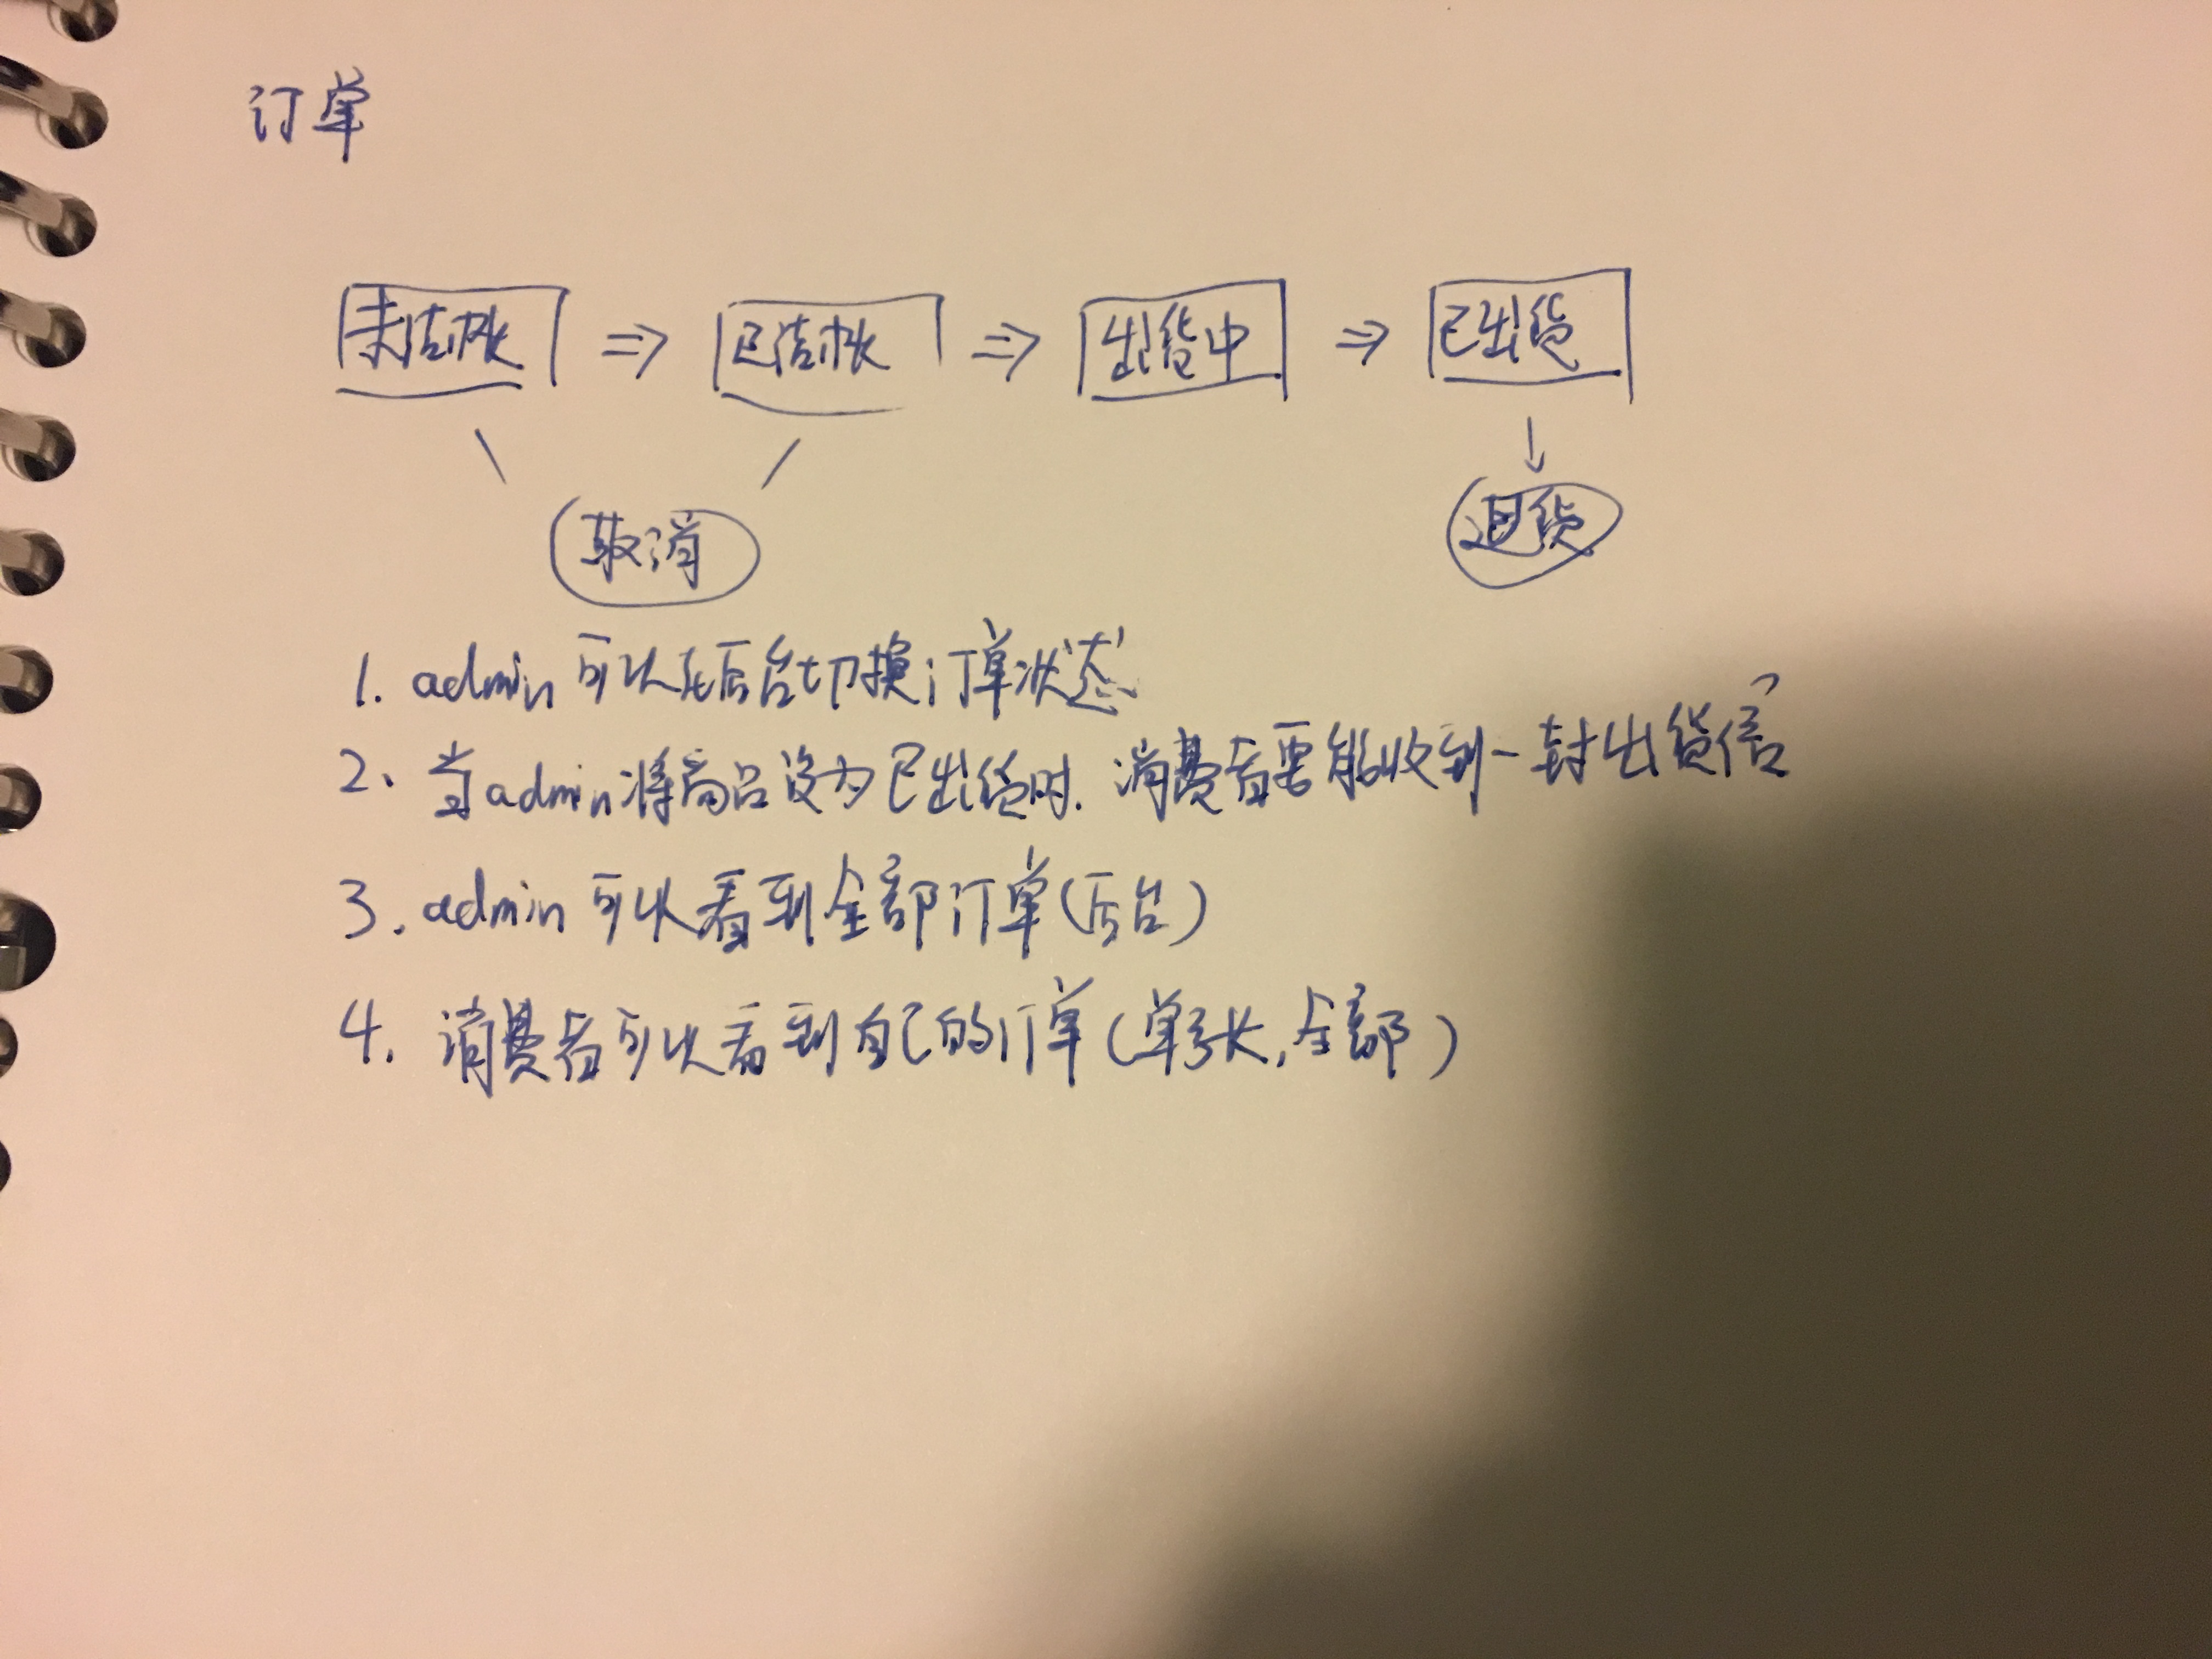 订单
未结帐 ⇒ 已结帐 ⇒ 出货中 ⇒ 已出货
取消 退货
1. admin 可以在后台切换订单状态
2、当admin将商品设为已出货时. 消费者需要能收到一封出货信
3. admin 可以看到全部订单(后台)
4. 消费者可以看到自己的订单(单张,全部)